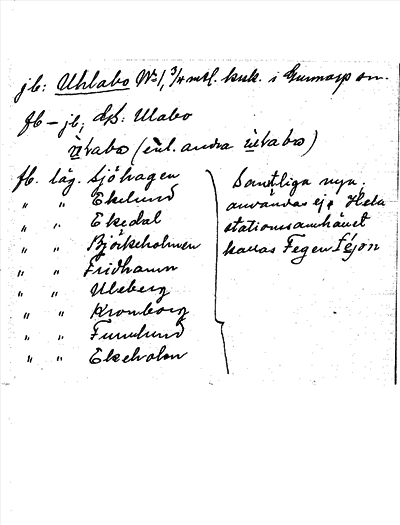 jb: Uhlabo No 1, 3/4 mtl. krk. i Gunnarp sn.
fb – jb, dp: Ulabo
ùtabo (enl. andra ùlabo)
fb. läg. Sjöhagen
" " Ekelund
" " Ekedal
" " Björkeholmen
" " Fridhamn
" " Uleberg
" " Kronborg
" " Furulund
" " Ekeholm
Samtliga nya.
användas ej. Hela
stationssamhället
kallas Fegen féjən